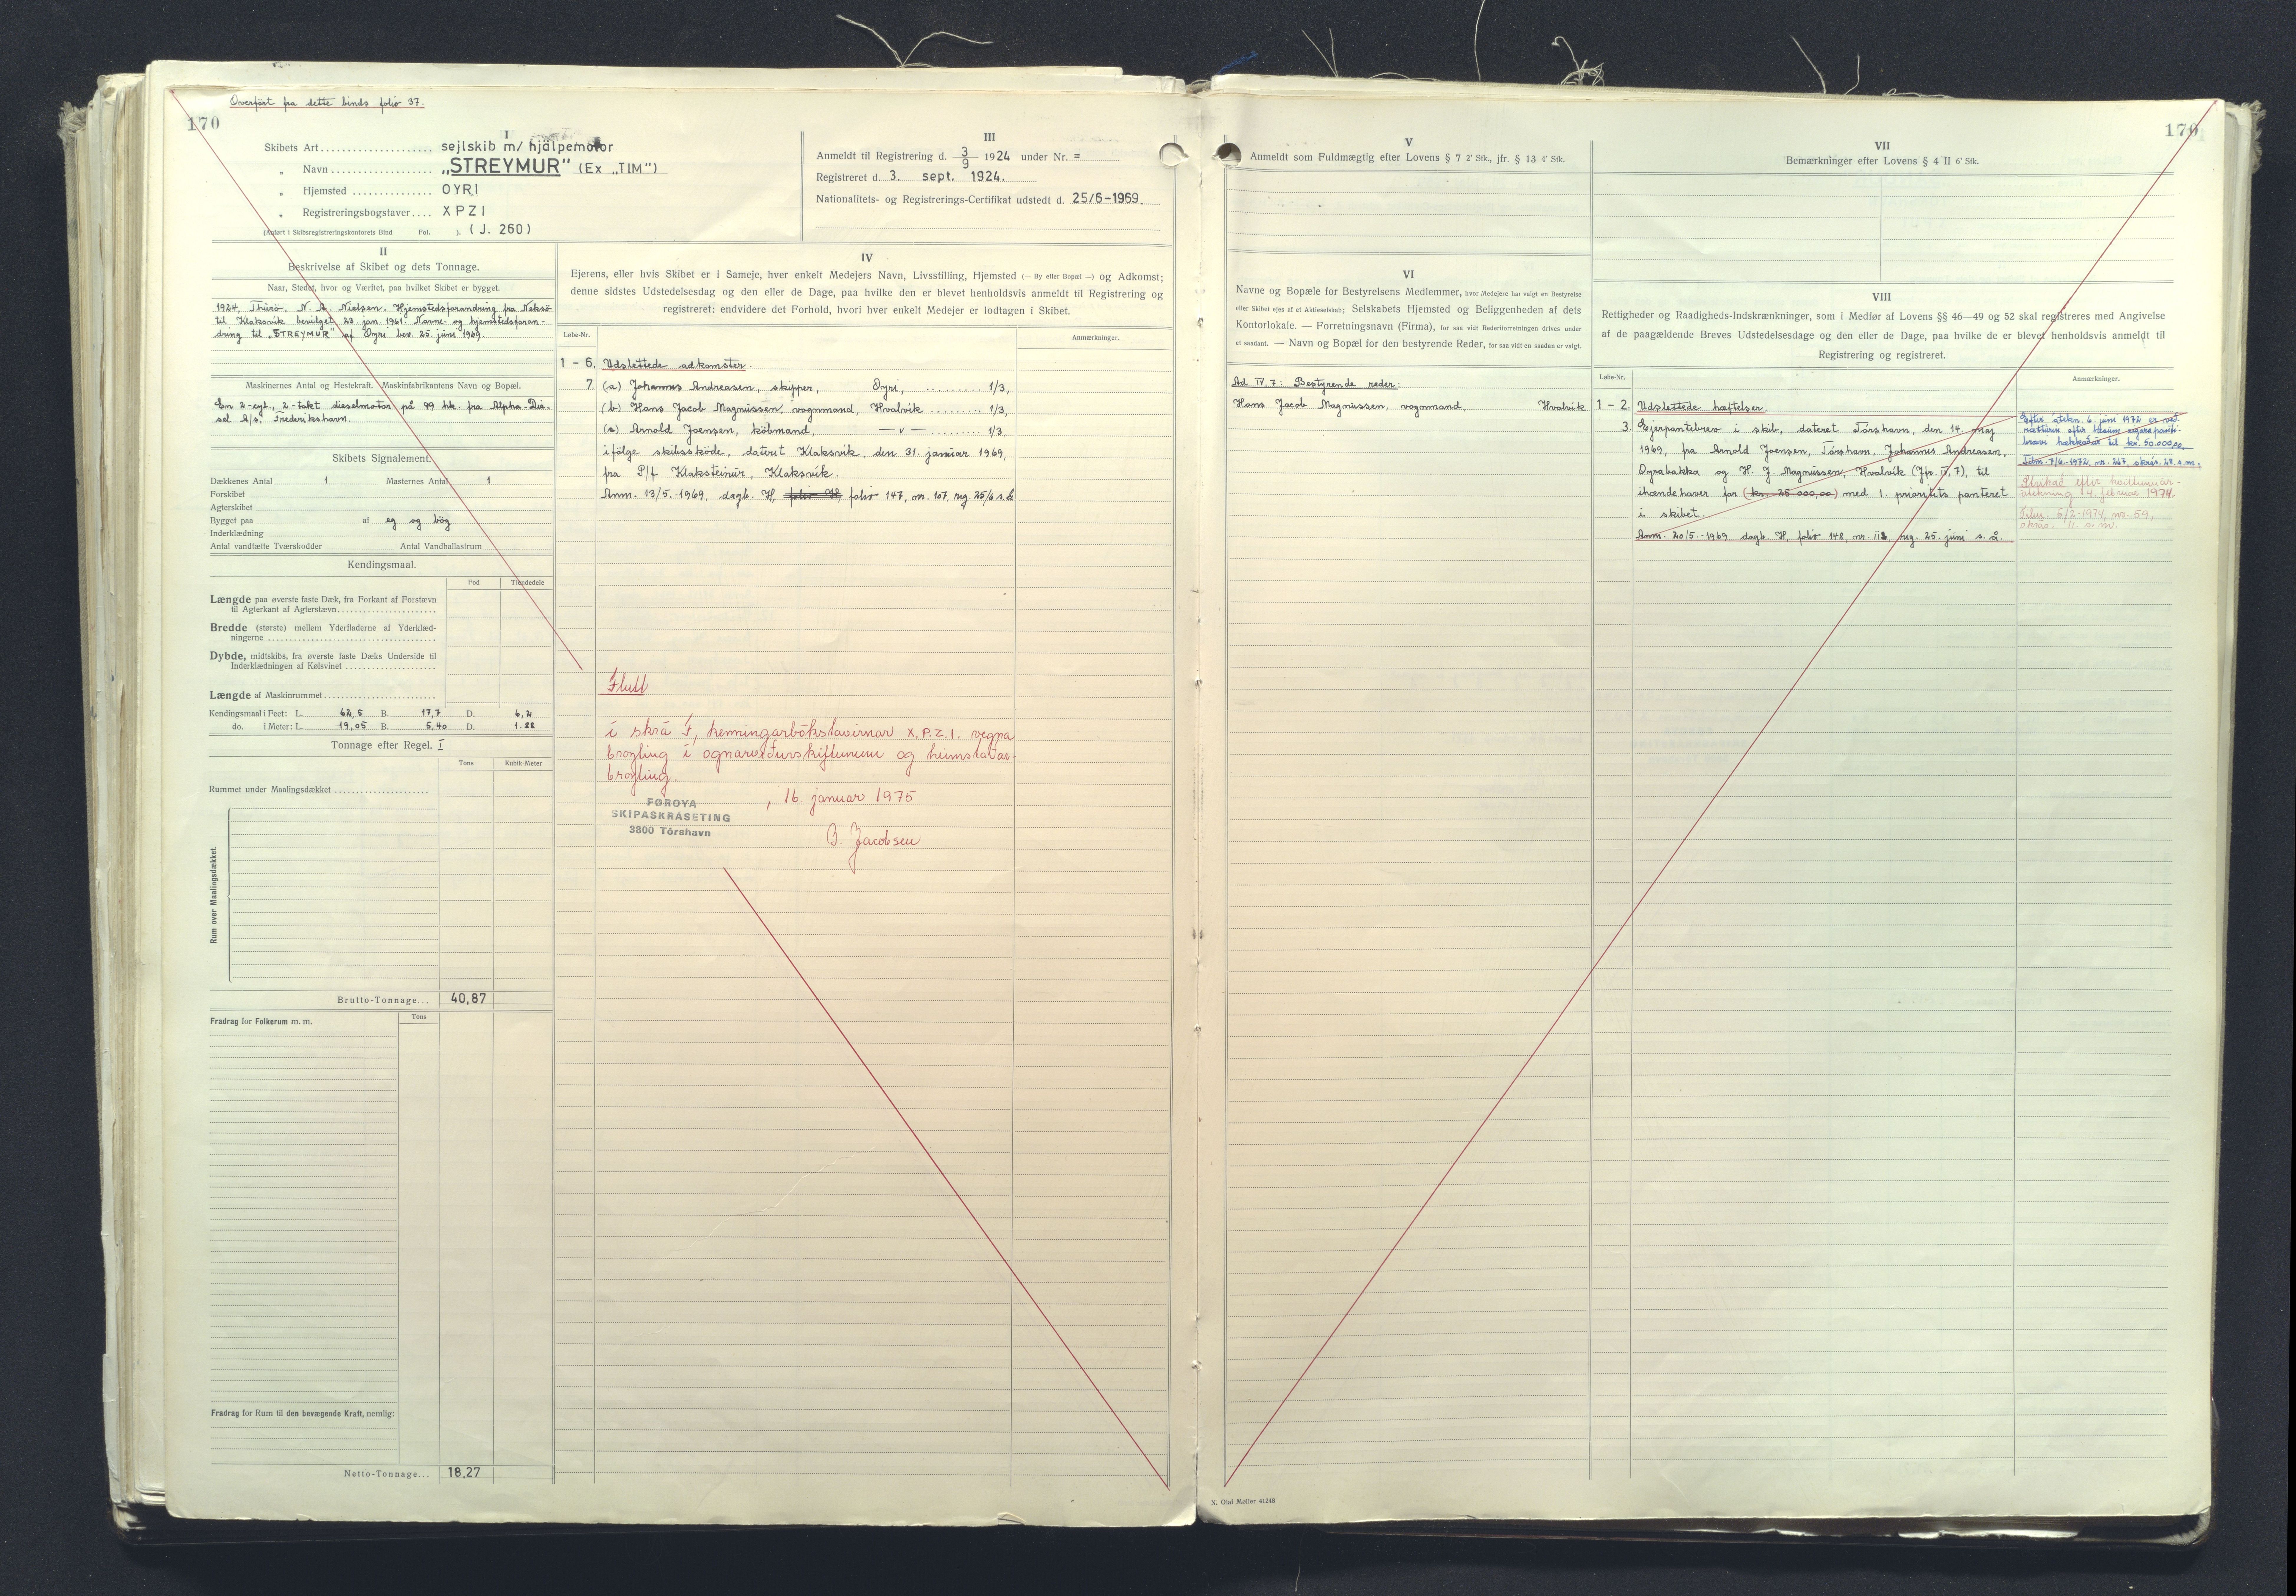 Overført fra dette binds folio 37.
170
I
Skibets Art.................... sejlskib m/ hjälpemotor
„ Navn .................. „STREYMUR" (Ex „TIM")
„ Hjemsted .............. OYRI
„ Registreringsbogstaver.... XPZI
(Anført i Skibsregistreringskontorets Bind Fol. ). (J. 260)
III
Anmeldt til Registrering d. 3/9 1924 under Nr. =
Registreret d. 3. sept. 1924.
Nationalitets- og Registrerings-Certifikat udstedt d. 25/6-1969.
II
Beskrivelse af Skibet og dets Tonnage.
Naar, Stedet, hvor og Værftet, paa hvilket Skibet er bygget.
1924, Thurö, N. A. Nielsen. Hjemstedsforandring fra Neksö
til Klaksvik bevilget 23. jan. 1961. Navne- og hjemstedsforan-
dring til „STREYMUR" af Oyri bev. 25. juni 1969.
Maskinernes Antal og Hestekraft. Maskinfabrikantens Navn og Bopæl.
En 2-cyl., 2-takt dieselmotor på 99 hk. fra Alpha-Die-
sel A/S, Frederikshavn.
Skibets Signalement.
Dækkenes Antal 1 Masternes Antal 1
Forskibet
Agterskibet
Bygget paa af eg og bög
Inderklædning
Antal vandtætte Tværskodder Antal Vandballastrum
Kendingsmaal.
Fod Tiendedele
Længde paa øverste faste Dæk, fra Forkant af Forstævn
til Agterkant af Agterstævn
Bredde (største) mellem Yderfladerne af Yderklæd-
ningerne
Dybde, midtskibs, fra øverste faste Dæks Underside til
Inderklædningen af Kølsvinet
Længde af Maskinrummet
Kendingsmaal i Feet: L. 62,5 B. 17,7 D. 6,2
do. i Meter: L. 19,05 B. 5,40 D. 1.88
Tonnage efter Regel. I
Tons Kubik-Meter
Rummet under Maalingsdækket
Rum over Maalingsdækket.
Brutto-Tonnage... 40,87
Fradrag for Folkerum m. m. Tons
Fradrag for Rum til den bevægende Kraft, nemlig:
Netto-Tonnage... 18,27
IV
Ejerens, eller hvis Skibet er i Sameje, hver enkelt Medejers Navn, Livsstilling, Hjemsted (— By eller Bopæl —) og Adkomst;
denne sidstes Udstedelsesdag og den eller de Dage, paa hvilke den er blevet henholdsvis anmeldt til Registrering og
registreret; endvidere det Forhold, hvori hver enkelt Medejer er lodtagen i Skibet.
Løbe-Nr. Anmærkninger.
1 - 6. Udslettede adkomster.
7. (a) Johannes Andreasen, skipper, Oyri, ......... 1/3,
(b) Hans Jacob Magnussen, vognmand, Hvalvik ......... 1/3,
(c) Arnold Joensen, köbmand, — v — ......... 1/3,
ifölge skibsskøde, dateret Klaksvik, den 31. januar 1969,
fra P/f Klaksteinur, Klaksvik.
Anm. 13/5.-1969, dagb. H, folio H, folio 147, nr. 107, reg. 25/6 s.å.
Flutt
í skrá F, kenningarbókstavirnar X.P.Z.I. vegna
broyting í ognarlutaskiftunum og heimstaðar-
broyting.
FØROYA
SKIPASKRÁSETING
3800 Tórshavn
, 16. januar 1975
B. Jacobsen
170
V
Anmeldt som Fuldmægtig efter Lovens § 7 2' Stk., jfr. § 13 4' Stk.
VI
Navne og Bopæle for Bestyrelsens Medlemmer, hvor Medejere har valgt en Bestyrelse
eller Skibet ejes af et Aktieselskab; Selskabets Hjemsted og Beliggenheden af dets
Kontorlokale. — Forretningsnavn (Firma), for saa vidt Rederiforretningen drives under
et saadant. — Navn og Bopæl for den bestyrende Reder, for saa vidt en saadan er valgt.
Ad IV, 7: Bestyrende reder:
Hans Jacob Magnussen, vognmand, Hvalvik
VII
Bemærkninger efter Lovens § 4 II 6' Stk.
VIII
Rettigheder og Raadigheds-Indskrænkninger, som i Medfør af Lovens §§ 46—49 og 52 skal registreres med Angivelse
af de paagældende Breves Udstedelsesdage og den eller de Dage, paa hvilke de er blevet henholdsvis anmeldt til
Registrering og registreret.
Løbe-Nr. Anmærkninger.
1 - 2. Udslettede hæftelser.
3. Ejerpantebrev i skib, dateret Tórshavn, den 14. maj
1969, fra Arnold Joensen, Tórshavn, Johannes Andreasen,
Ograbakka og H. J. Magnussen, Hvalvik (Jfs. IV, 7), til
ihændehaver for (kr. 25.000,00) med 1. prioritets panteret
i skibet.
Anm. 20/5.-1969, dagb. H, folio 148, nr. 113, reg. 25. juni s. å.
Eftir átekn. 6. juni 1972 er veð-
rætturin eftir hesum egarapante-
brævi hækkaður til kr. 50.000,00.
Tilm. 7/6.-1972, nr. 267, skrás. 28. s.m.
Strikað eftir kvittanar-
átekning 4. februar 1974.
Tilm. 5/2-1974, nr. 59,
skrás. 11. s.m.
N. Olaf Møller 41248